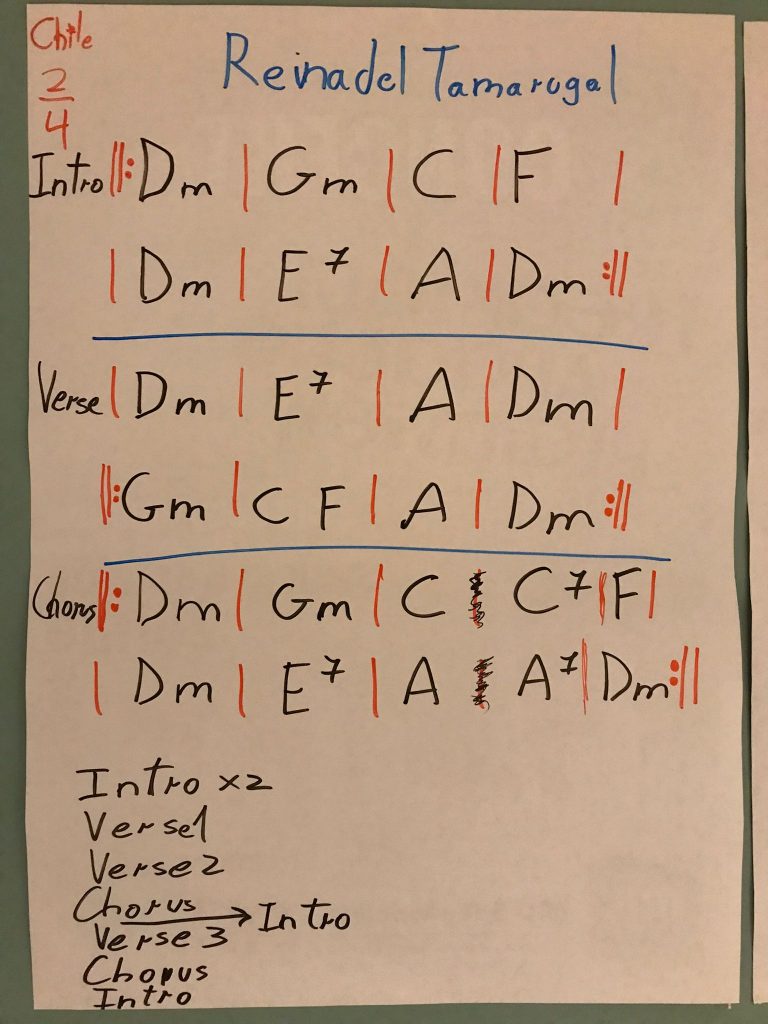 Chile
2
4
Reinadel Tamarugal
Intro ||: Dm | Gm | C | F |
| Dm | E7 | A | Dm :||
Verse | Dm | E7 | A | Dm |
||: Gm | C F | A | Dm :||
Chorus ||: Dm | Gm | C C7 | F |
| Dm | E7 | A A7 | Dm :||
Intro x2
Verse1
Verse 2
Chorus → Intro
Verse 3
Chopus
Intro